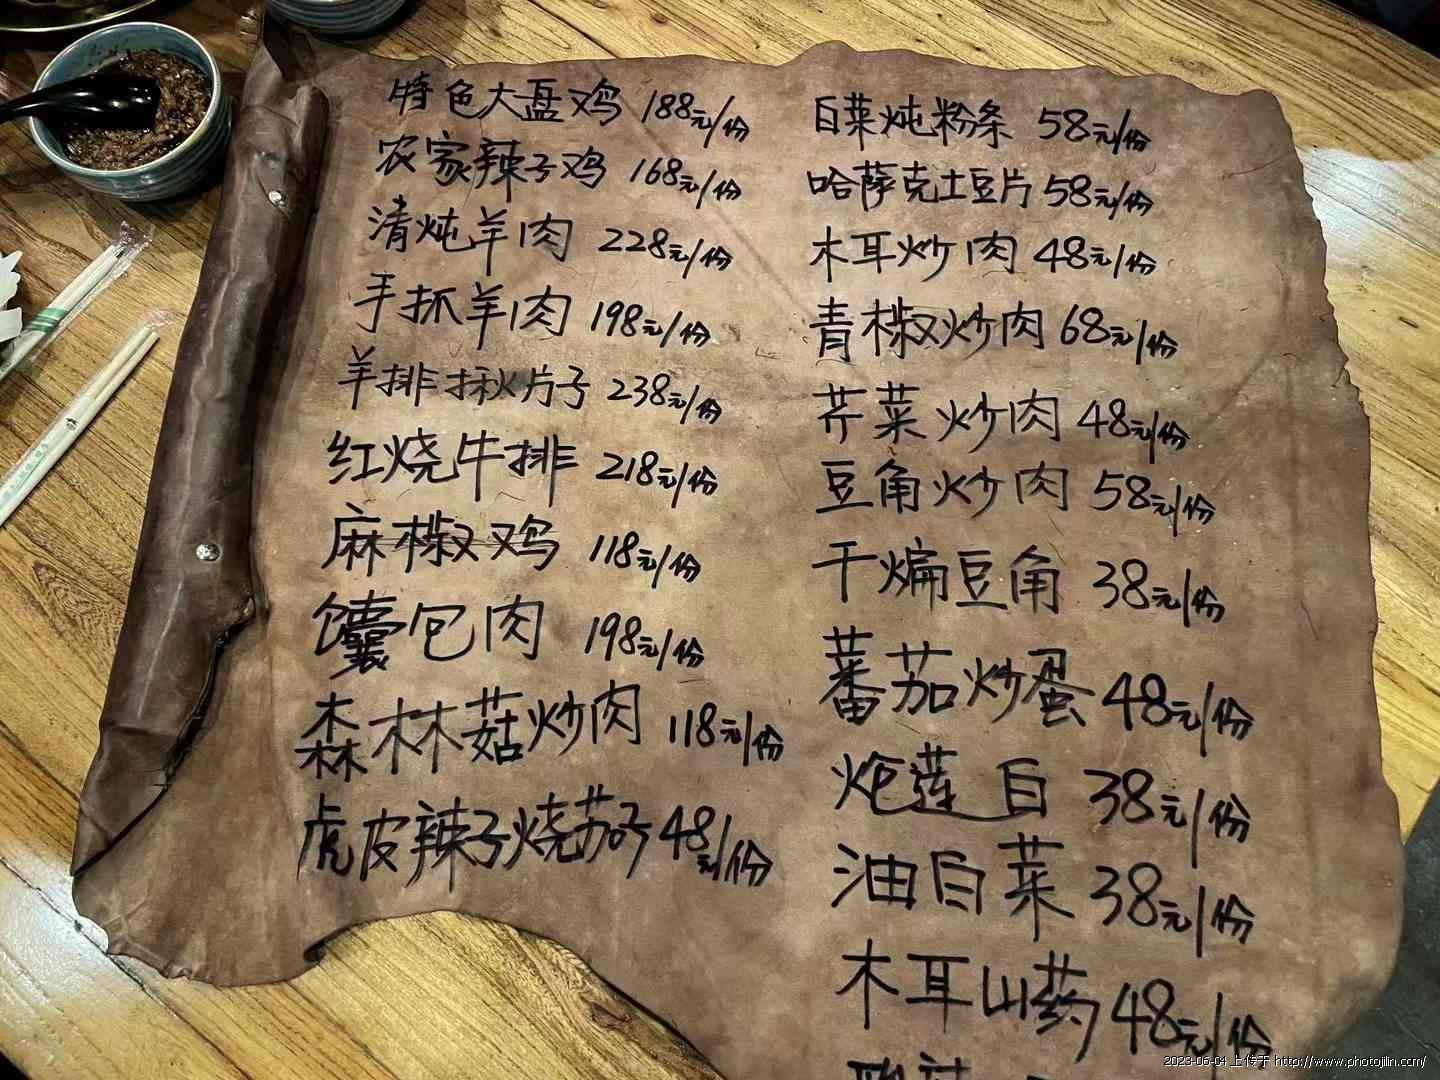 特色大盘鸡 188元/份
农家辣子鸡 168元/份
清炖羊肉 228元/份
手抓羊肉 198元/份
羊排揪片子 238元/份
红烧牛排 218元/份
麻椒鸡 118元/份
馕包肉 198元/份
森林菇炒肉 118元/份
虎皮辣子烧茄子 48元/份
白菜炖粉条 58元/份
哈萨克土豆片 58元/份
木耳炒肉 48元/份
青椒炒肉 68元/份
芹菜炒肉 48元/份
豆角炒肉 58元/份
干煸豆角 38元/份
蕃茄炒蛋 48元/份
炝莲白 38元/份
油白菜 38元/份
木耳山药 48元/份
2023-06-04 上传于 http://www.photojilin.com/